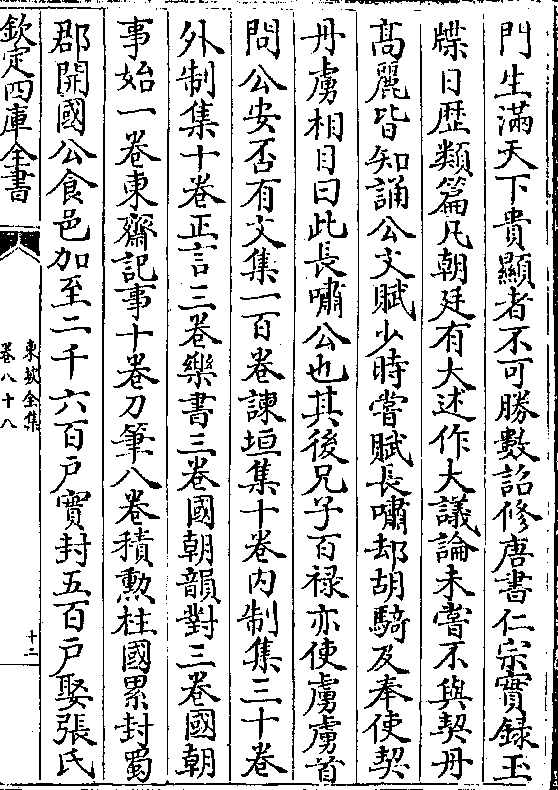 門生滿天下貴顯者不可勝數詔修唐書仁宗實録玉
牒日歴類篇凡朝廷有大述作大議論未嘗不與契丹
髙麗皆知誦公文賦少時嘗賦長嘯却胡騎及奉使契
丹虜相目曰此長嘯公也其後兄子百禄亦使虜虜首
問公安否有文集一百卷諫垣集十卷内制集三十卷
外制集十卷正言三卷樂書三卷國朝韻對三卷國朝
事始一卷東齋記事十卷刀筆八卷積勲柱國累封蜀
郡開國公食邑加至二千六百戸實封五百戸娶張氏
欽定四庫全書
東坡全集
卷八十八
十二